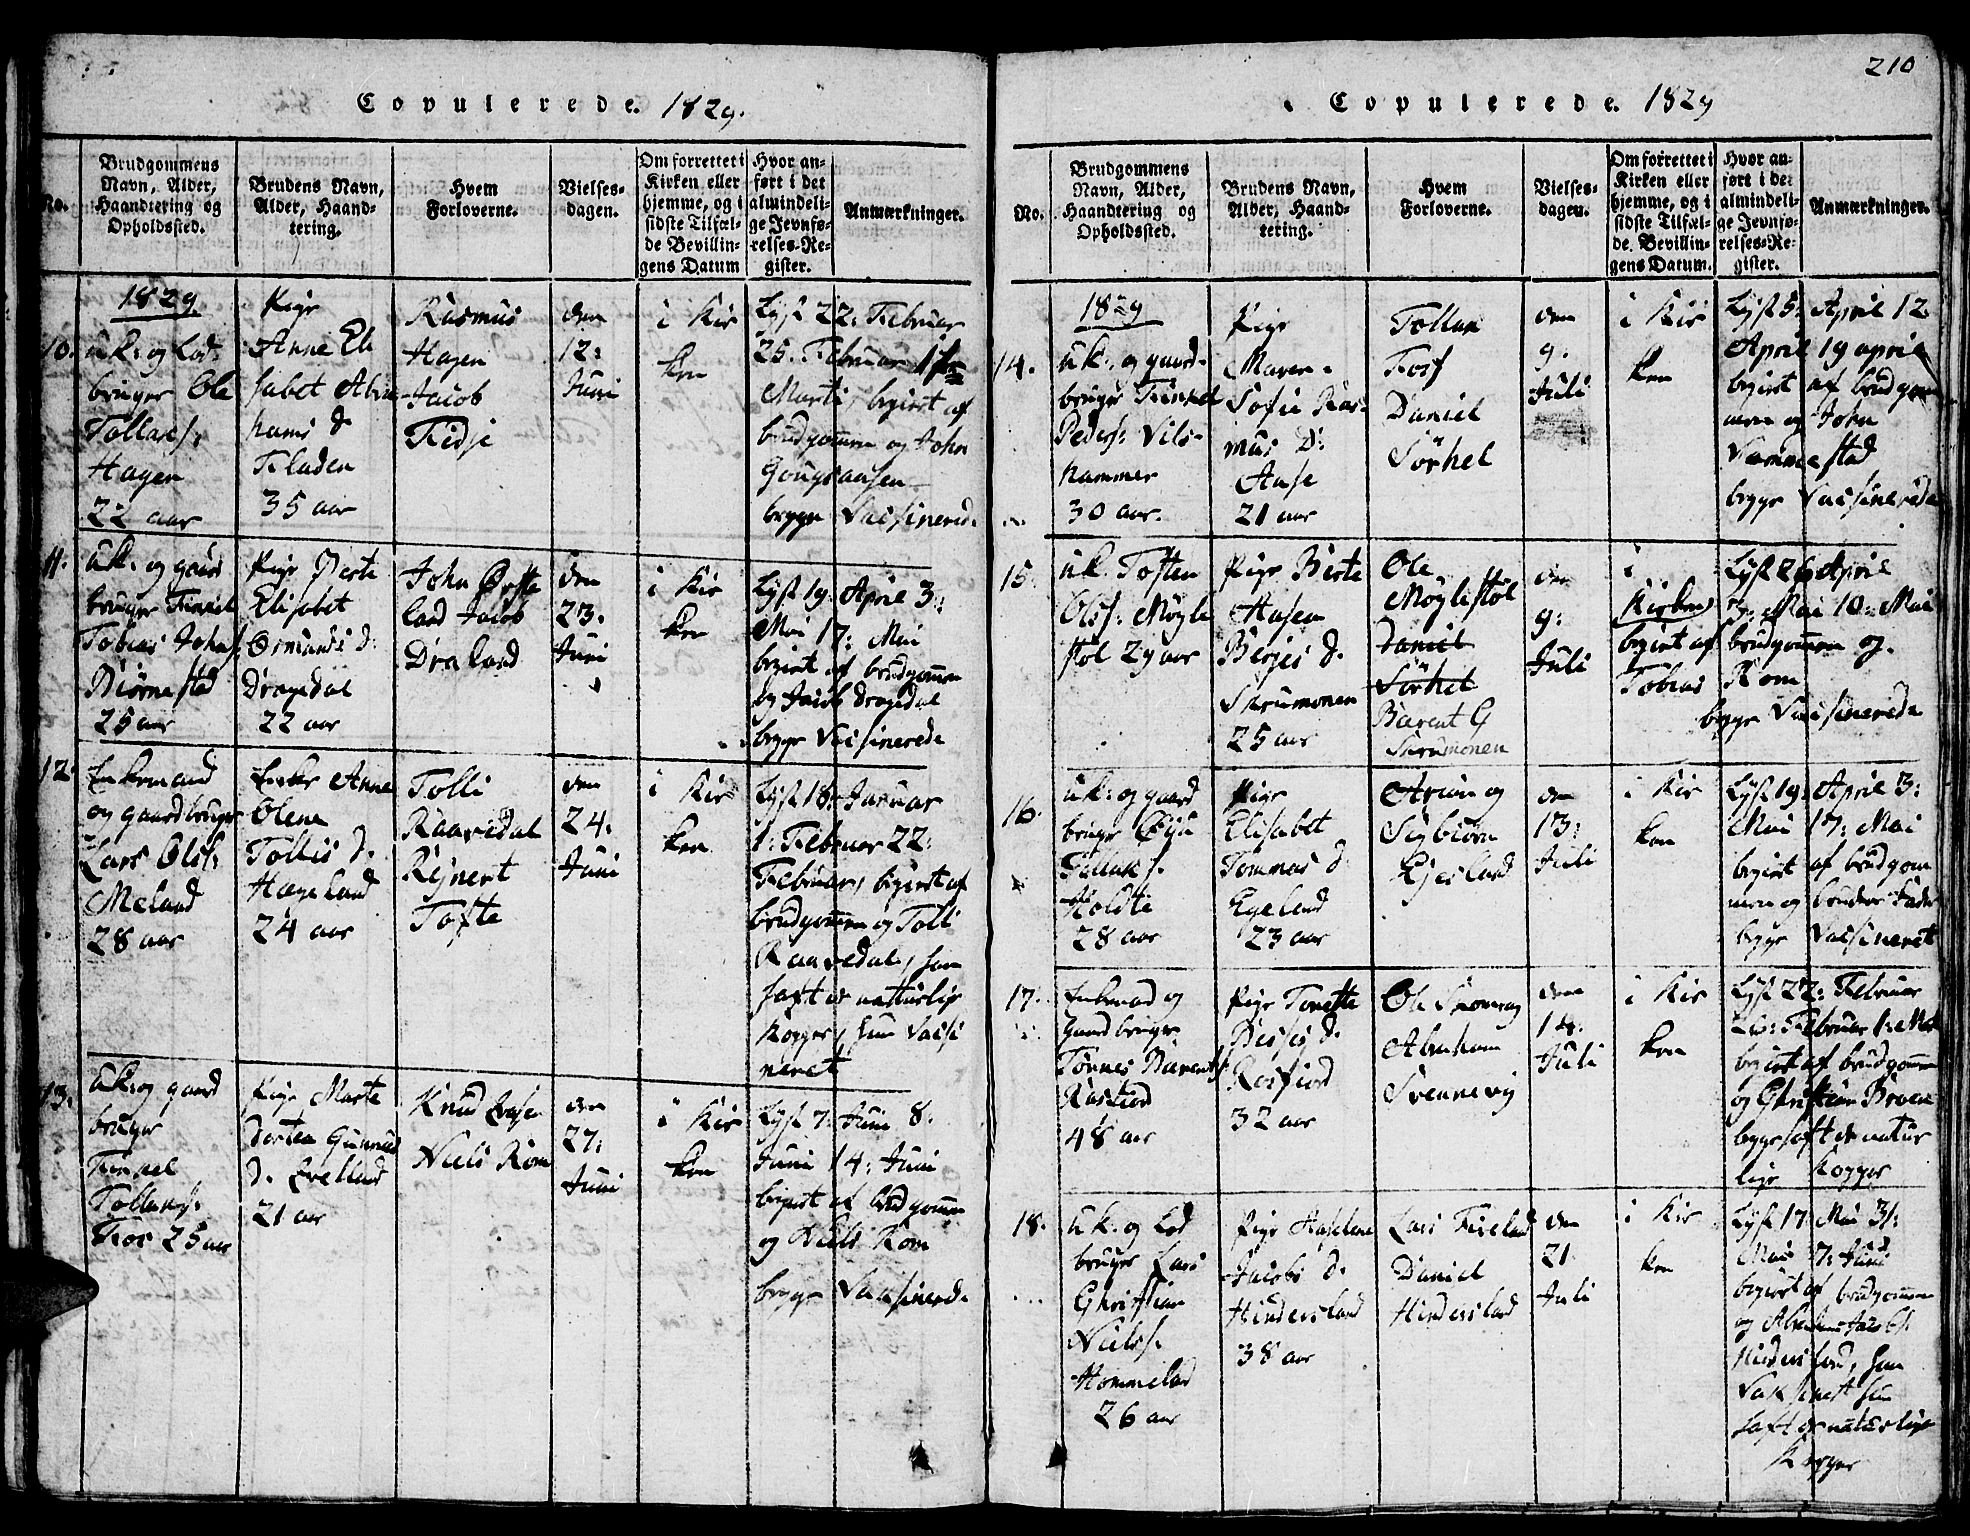 Copulerede. 1829.
No.
Brudgommens
Navn, Alder,
Haandtering og
Opholdssted.
Brudens Navn,
Alder, Haand-
tering.
Hvem
Forloverne.
Vielses-
dagen.
Om forrettet i
Kirken eller
hjemme, og i
sidste Tilfæl-
de Bevillin-
gens Datum
Hvor an-
ført i det
almindeli-
ge Jevnfø-
relses-Re-
gister.
Anmærkninger.
10.
1829
uk: og Lod-
bruger Ole
Tollacs:
Hagen
22 aar
Pige
Anne Eli
sabet Abra
hams d
Fladen
35 aar
Rasmus
Hagen
Jacob
Fidje
den
12:
Juni
i Kir
ken
Lyst 22: Februar
25. Februar 1ste
Marti, begiert af
brudgommen og John
begge Vaisinered.
11.
uk: og gaard
bruger Tinnel
Tobias Johns
Biørnestad
25 aar
Pige Berte
Elisabet
Ormunds d:
Dragedal
22 aar
John Ørste
land Jacob
Draland
den
23.
Juni
i Kir
ken
Lyst 19: April 3:
Mai 17: Mai
begiert af brudgommen
og Jacob Dragedal
begge Vaisinerede
12.
Enkemand
og gaardbruger
Lars Ols:
Meland
28 aar
Enke Anne
Olene
Tollis d.
Hægeland
24 aar
Tolli
Raavedal
Rejnert
Tofte
den
24.
Juni
i Kir
ken
Lyst 18: Januar
1: Februar 22:
Februar, begiert af
brudgommen og Tolli
Raavedal, han
haft de natturlige
Kopper, hun Vaisi
neret
13.
uk: og gaard
bruger
Tinnel
Tollacs:
Fos 25 aar
Pige Marte
Dortea Gunnuls
d. Evelland
21 aar
Knud
Niels Rom
den
27:
Juni
i Kir
ken
Lyst 7: Juni 8.
Juni 14: Juni
begiert af brudgommen
og Niels Rom
begge Vaisinered.
210
Copulerede. 1829
No.
Brudgommens
Navn, Alder,
Haandtering og
Opholdssted.
Brudens Navn,
Alder, Haand-
tering.
Hvem
Forloverne.
Vielses-
dagen.
Om forrettet i
Kirken eller
hjemme, og i
sidste Tilfæl-
de Bevillin-
gens Datum.
Hvor an-
ført i det
almindeli-
ge Jevnfø-
relses-Re-
gister.
Anmærkninger.
14.
1829
uk: og gaard-
bruger Tinnel
Peders: Vils-
hammer
30 aar.
Pige
Maren
Sofie Ras-
mus D:
Aase
21 aar
Tollak
Fos
Daniel
Sørhel
den
9.
Juli
i Kir
ken
Lyst 5: April 12:
April 19 april
begiert af brudgom
men og John
Vammestad
begge Vaisinerede
15.
uk. Tosten
Ols: Møgle
støl 29 aar
Pige Berte
Aasen
Berges d.
Skrumonen
25 aar
Ole
Møglestøl
Daniel
Sørhel
Barent G
Skrumonen
den
9:
Juli
i
Kirken
Lyst 26 April
3: Mai 10: Mai
begiert af brudgommen og
Tobias Rom
begge Vaisinerede
16.
uk: og gaard
bruger
Tallaks:
Holdte
28 aar
Pige
Elisabet
Tommas d:
Egeland
23 aar
og
Sigbiørn
Egeland
den
13:
Juli
i Kir
ken
Lyst 19: April 3:
Mai 17: Mai
begiert af brudgom
men og brudens Fader
begge Vaisineret
17.
Enkemad og
Gaardbruger
Tønnes Barents
Rosfiord
48 aar
Pige Tonette
d.
Rosfiord
32 aar
Ole
Abraham
Svennevig
den
14.
Juli
i Kir
ken
Lyst 22: Februar
Februar 1: Mar
begiert af brudgommen
og Christian Broen
begge haft de natur
lige Kopper
18.
uk: og Lod
bruger Lars
Christian
Niels:
Hommelad
26 aar
Pige Haslene
Jacobs d.
Hindersland
38 aar
Lars Fieland
Daniel
Hindersland
den
21.
Juli
i Kir
ken
Lyst 17 Mai 31:
Mai 7: Juni
begiert af brudgommen
og Abraham Jacobs:
han
hun
haft de naturlige
Kopper